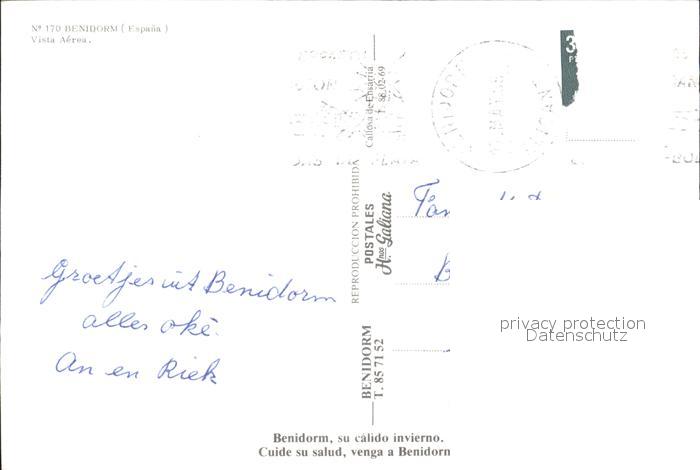 Nº 170 BENIDORM ( España )
Vista Aérea.
Groetjes uit Benidorm
alles oké.
An en Riek
Callosa de Ensarriá
T. 88 02 69
REPRODUCCION PROHIBIDA
POSTALES
Hnos Galiana
BENIDORM
T. 85 71 52
Fam
B
3
privacy protection
Datenschutz
Benidorm, su cálido invierno.
Cuide su salud, venga a Benidorm